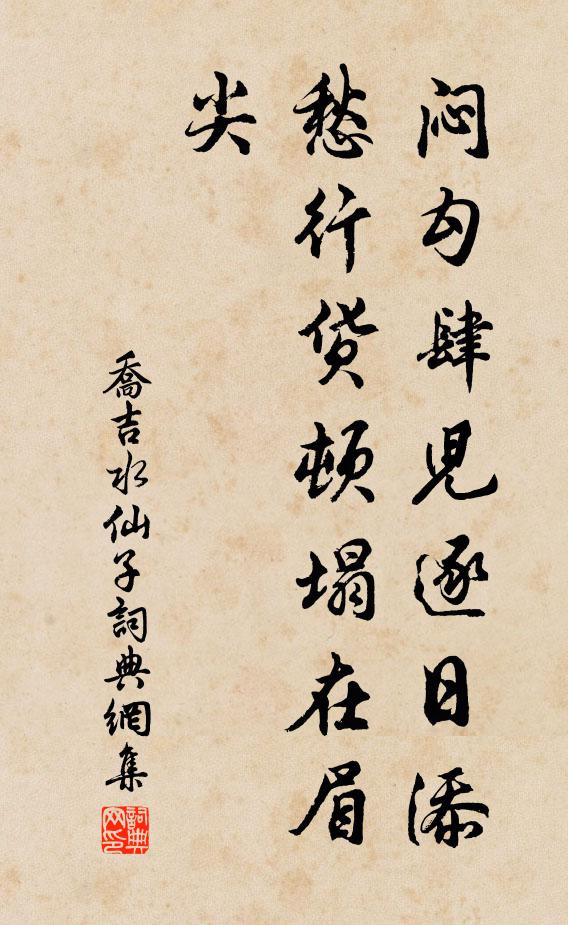 闷勾肆兒逐日添
愁行货顿塌在眉
尖
喬吉水仙子詞典網集
詞典
网印